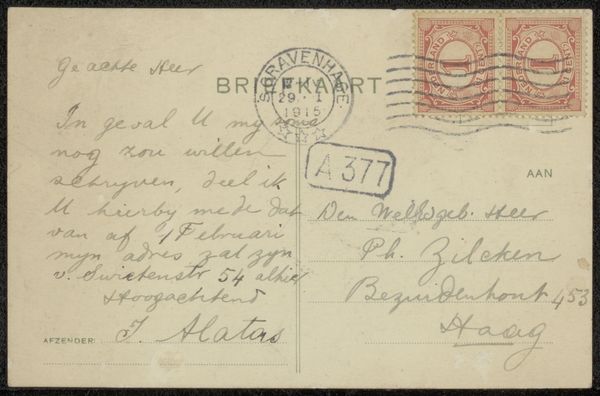 BRIEFKAART
'S GRAVENHAGE
29. 1
1915
NEDERLAND
1
CENT
NEDERLAND
1
CENT
A 377
Geachte Heer
In geval U my
nog zou willen
schryven, deel ik
U hierby mede dat
van af 1 Februari
myn adres zal zyn
v. Swietenstr 54 alhier
Hoogachtend
AFZENDER: J. Alatas
AAN
Den Weledgeb. Heer
Ph. Zilcken
Bezuidenhout 453
Haag